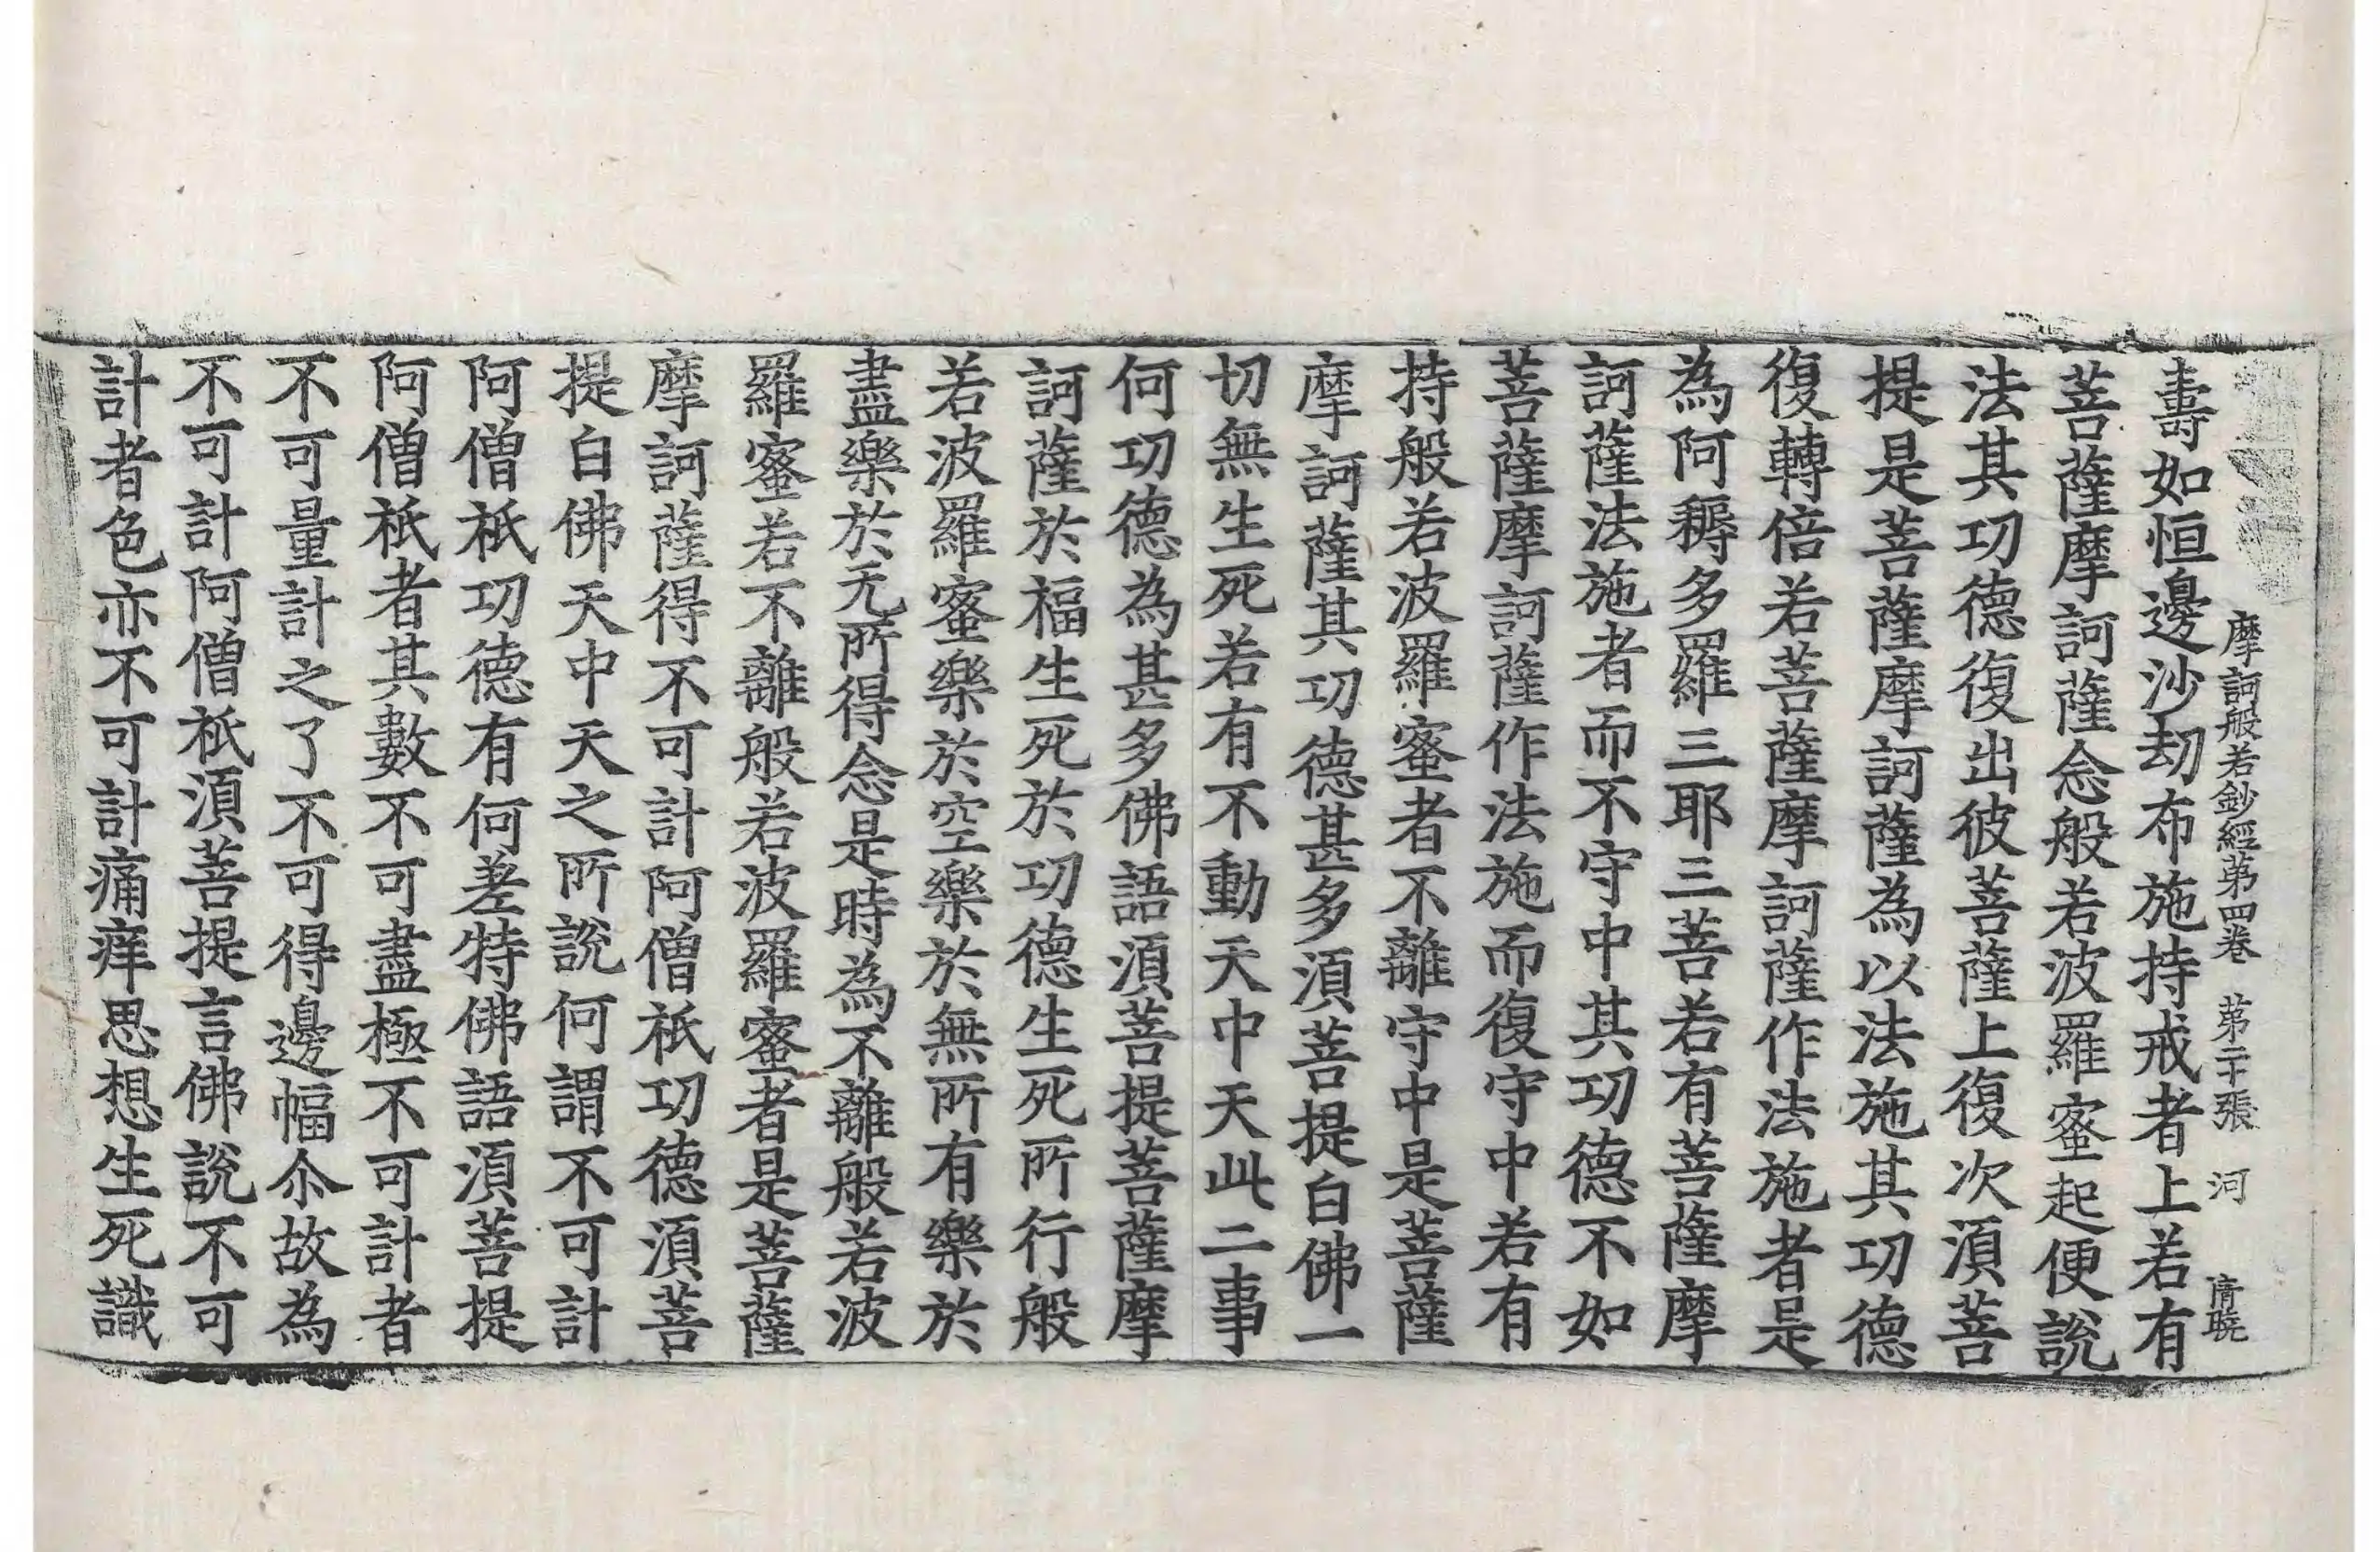 摩訶般若鈔經第四卷 第二十張 河
壽如恒邊沙劫布施持戒者上若有
菩薩摩訶薩念般若波羅蜜起便說
法其功德復出彼菩薩上復次須菩
提是菩薩摩訶薩為以法施其功德
復轉倍若菩薩摩訶薩作法施者是
為阿耨多羅三耶三菩若有菩薩摩
訶薩法施者而不守中其功德不如
菩薩摩訶薩作法施而復守中若有
持般若波羅蜜者不離守中是菩薩
摩訶薩其功德甚多須菩提白佛一
切無生死若有不動天中天此二事
何功德為甚多佛語須菩提菩薩摩
訶薩於福生死於功德生死所行般
若波羅蜜樂於空樂於無所有樂於
盡樂於无所得念是時為不離般若波
羅蜜若不離般若波羅蜜者是菩薩
摩訶薩得不可計阿僧祇功德須菩
提白佛天中天之所說何謂不可計
阿僧祇功德有何差特佛語須菩提
阿僧祇者其數不可盡極不可計者
不可量計之了不可得邊幅尒故為
不可計阿僧祇須菩提言佛說不可
計者色亦不可計痛痒思想生死識